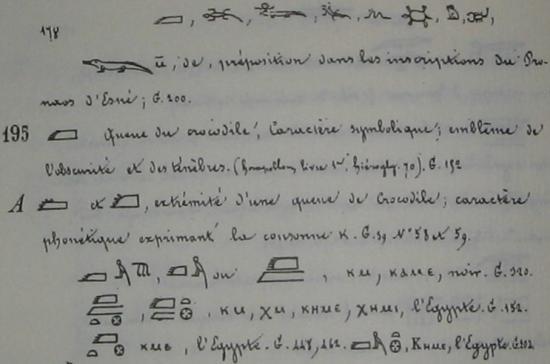 178
ⲛ̄, de, préposition dans les inscriptions du Pro-
naos d'Esné; G. 200.
195 queue du crocodile, Caractère symbolique; emblême de
l'obscurité et des ténèbres. (horapollon livre 1er. hiérogly. 70). G. 152
A et , extrémité d'une queue de Crocodile; caractère
phonétique exprimant la consonne K. G. 39 N° 58 et 59.
ou , ⲕⲙ, ⲕⲁⲙⲉ, noir. G. 320.
, ⲕⲙ, ⲭⲙ, ⲕⲏⲙⲉ, ⲭⲏⲙⲓ, l'Egypte. G. 152.
ⲕⲙⲉ, l'Egypte. G. ⲕⲏⲙⲉ, l'Egypte.